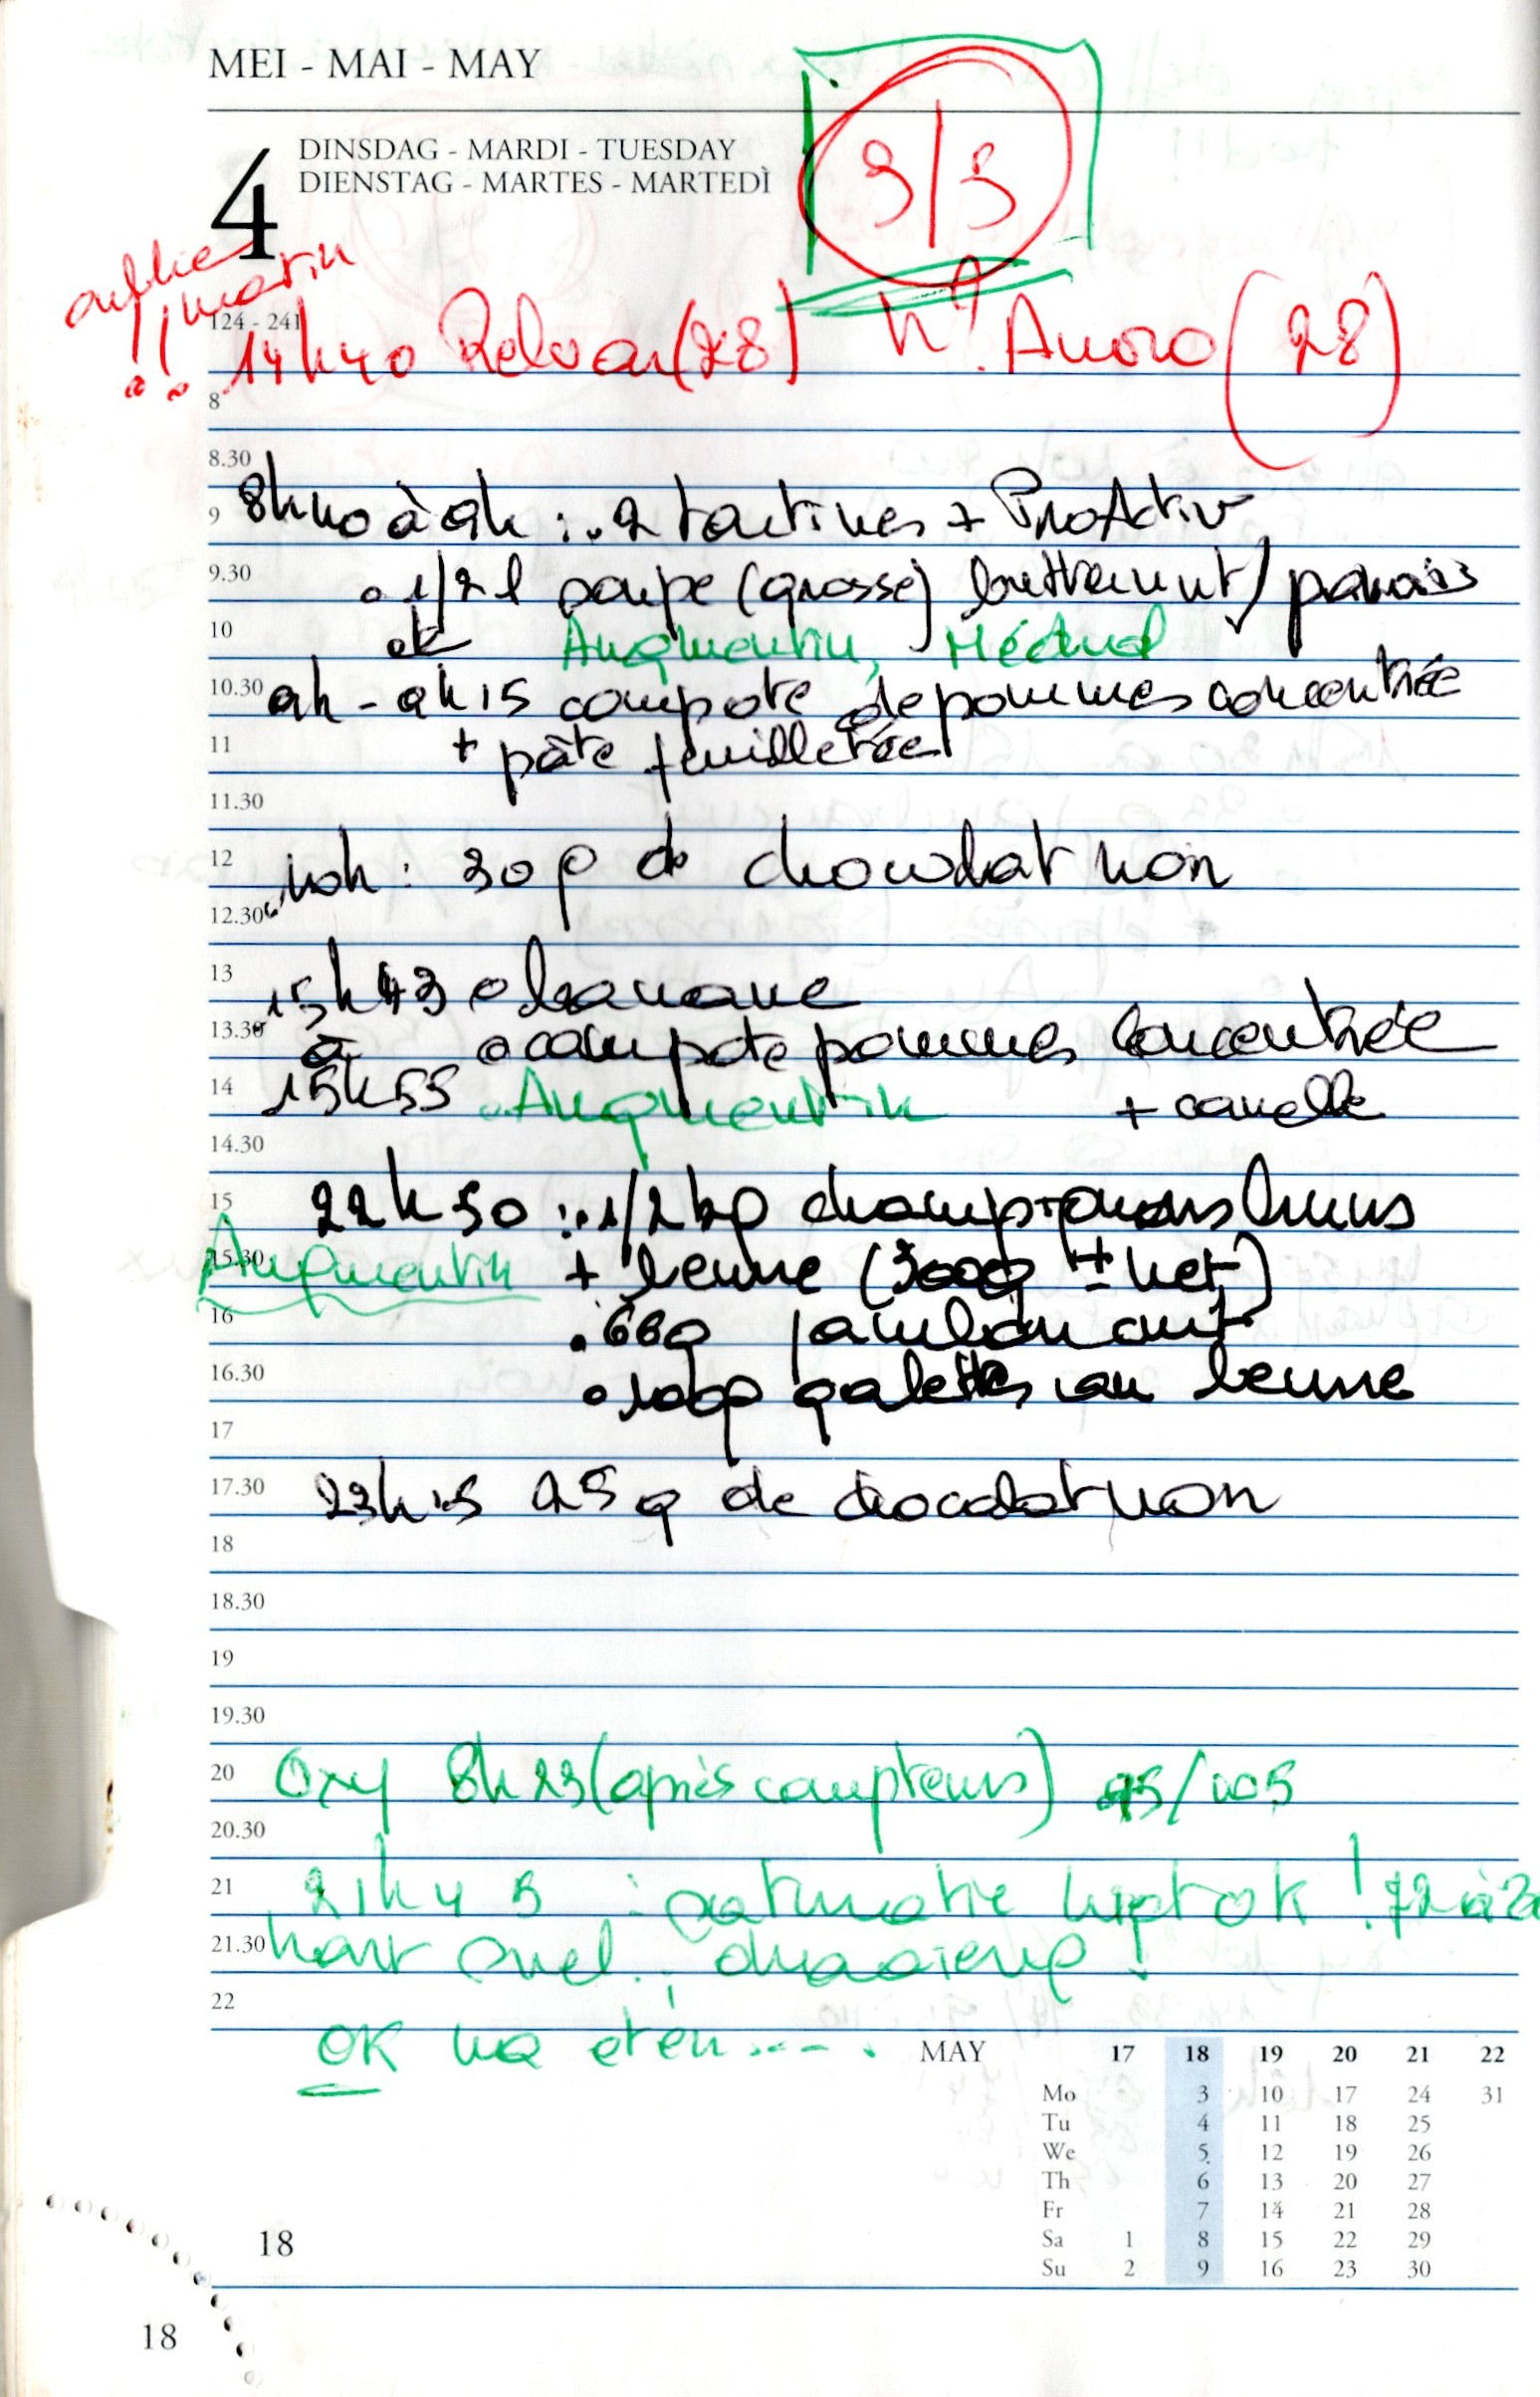 MEI - MAI - MAY
4
DINSDAG - MARDI - TUESDAY
DIENSTAG - MARTES - MARTEDÌ
3/3
oublié
matin
!!
124 - 241
14h40 Relvar (28) Anoro (28)
8
8.30
9 8h40 à 9h : . 2 tartines + ProActiv
9.30 . 1/2 l soupe (grosse) butternut / panais
10 ok Augmentin, Médrol
10.30 9h - 9h15 compote de pommes concentrée
11 + pâte feuilletée
11.30
12 10h : 30 g de chocolat noir
12.30
13 15h43 banane
13.30 à compote pommes concentrée
14 15h53 Augmentin + canelle
14.30
15 22h50 : . 1/2 kg champignons bruns
15.30 Augmentin + beurre (300g ± net)
16 . 66g jambon cuit
16.30 . 100g galettes au beurre
17
17.30 23h15 25 g de chocolat noir
18
18.30
19
19.30
20 Oxy 8h23 (après compteurs) 95/105
20.30
21 21h45 : ok !
21.30
22
OK na eten ....
MAY 17 18 19 20 21 22
Mo 3 10 17 24 31
Tu 4 11 18 25
We 5 12 19 26
Th 6 13 20 27
Fr 7 14 21 28
Sa 1 8 15 22 29
Su 2 9 16 23 30
18
18